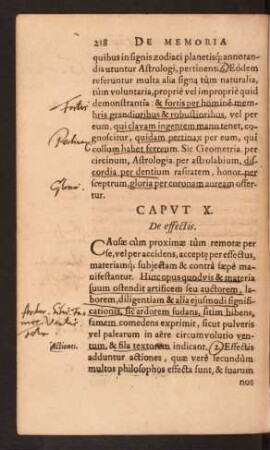 218 DE MEMORIA
quibus in signis zodiaci planetisq; annotan-
dis utuntur Astrologi, pertinent. Eódem
referuntur multa alia signa tùm naturalia,
tùm voluntaria, propriè vel impropriè quid
demonstrantia: & fortis per hominē mem-
bris grandioribus & robustioribus, vel per
eum, qui clavam ingentem manu tenet, co-
gnoscitur, quidam pertinax per eum, qui
collum habet ferreum. Sic Geometria per
circinum, Astrologia per astrolabium, dis-
cordia per dentium rasitatem, honor per
sceptrum, gloria per coronam auream offer-
tur.
CAPVT X.
De effectis.
CAusæ cùm proximæ tùm remotæ per
se, vel per accidens, acceptę per effectus,
materiamq; subjectam & contrà sæpè ma-
nifestantur. Hinc opus quodvis & materia
suum ostendit artificem seu auctorem,
laborem, diligentiam & alia ejusmodi signifi-
cationis, sic ardorem sudans, sitim bibens,
famem comedens exprimit, sicut pulveris
vel palearum in aëre circumvolutio ven-
tum, & fila textorem indicant. (2.) Effectis
adduntur actiones, quæ verè secundùm
multos philosophos effecta sunt, & suarum
nos
Fortis
Gloria.
Actiones.